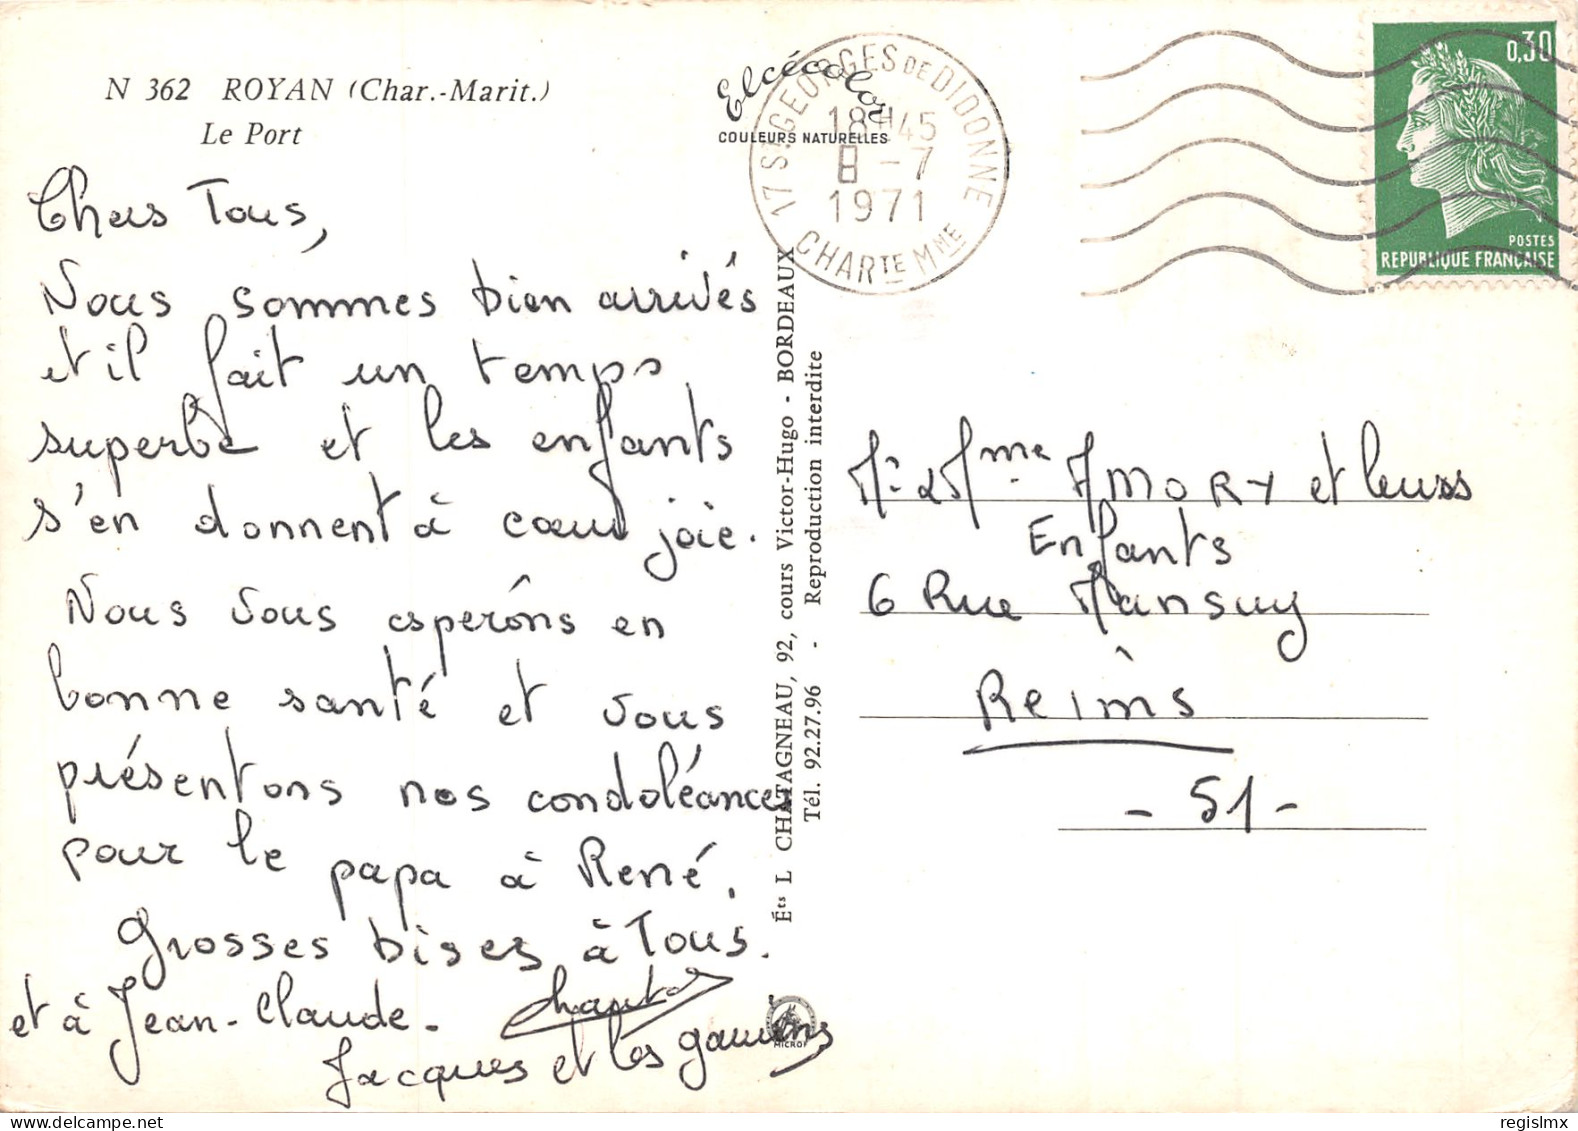 N 362 ROYAN (Char.-Marit.)
Le Port
Elcécolor
COULEURS NATURELLES
17 ST GEORGES DE DIDONNE
18H45
8 - 7
1971
CHARTE MME
0,30
POSTES
REPUBLIQUE FRANÇAISE
Chers Tous,
Nous sommes bien arrivés
et il fait un temps
superbe et les enfants
s'en donnent à cœur joie.
Nous vous espérons en
bonne santé et vous
présentons nos condoléances
pour le papa à René.
Grosses bises à Tous.
et à Jean-Claude.
Chantal
Jacques et les gamins
Éts L CHATAGNEAU, 92, cours Victor-Hugo - BORDEAUX
Tél. 92.27.96 - Reproduction interdite
MICROF
Mr & Mme AMORY et leurs
Enfants
6 Rue Mansuy
Reims
- 51 -
regislmx